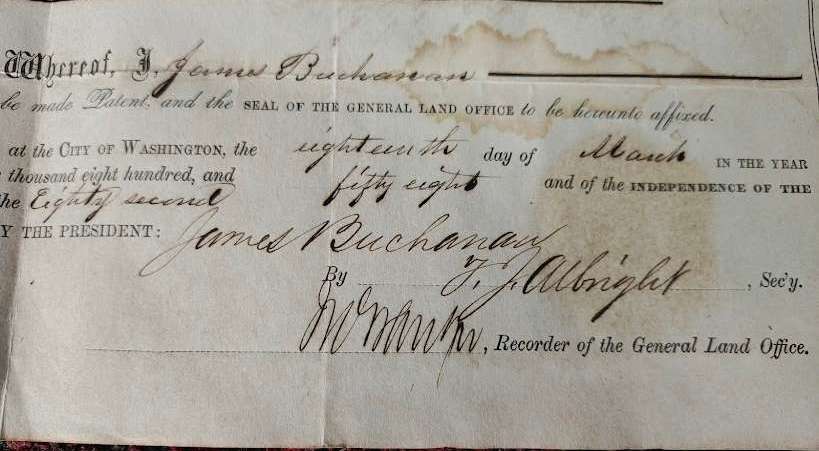 Whereof, I, James Buchanan
be made Patent, and the SEAL OF THE GENERAL LAND OFFICE to be hereunto affixed.
at the CITY OF WASHINGTON, the eighteenth day of March IN THE YEAR
thousand eight hundred, and fifty eight and of the INDEPENDENCE OF THE
the Eighty second
Y THE PRESIDENT: James Buchanan
By T. J. Albright, Sec'y.
, Recorder of the General Land Office.